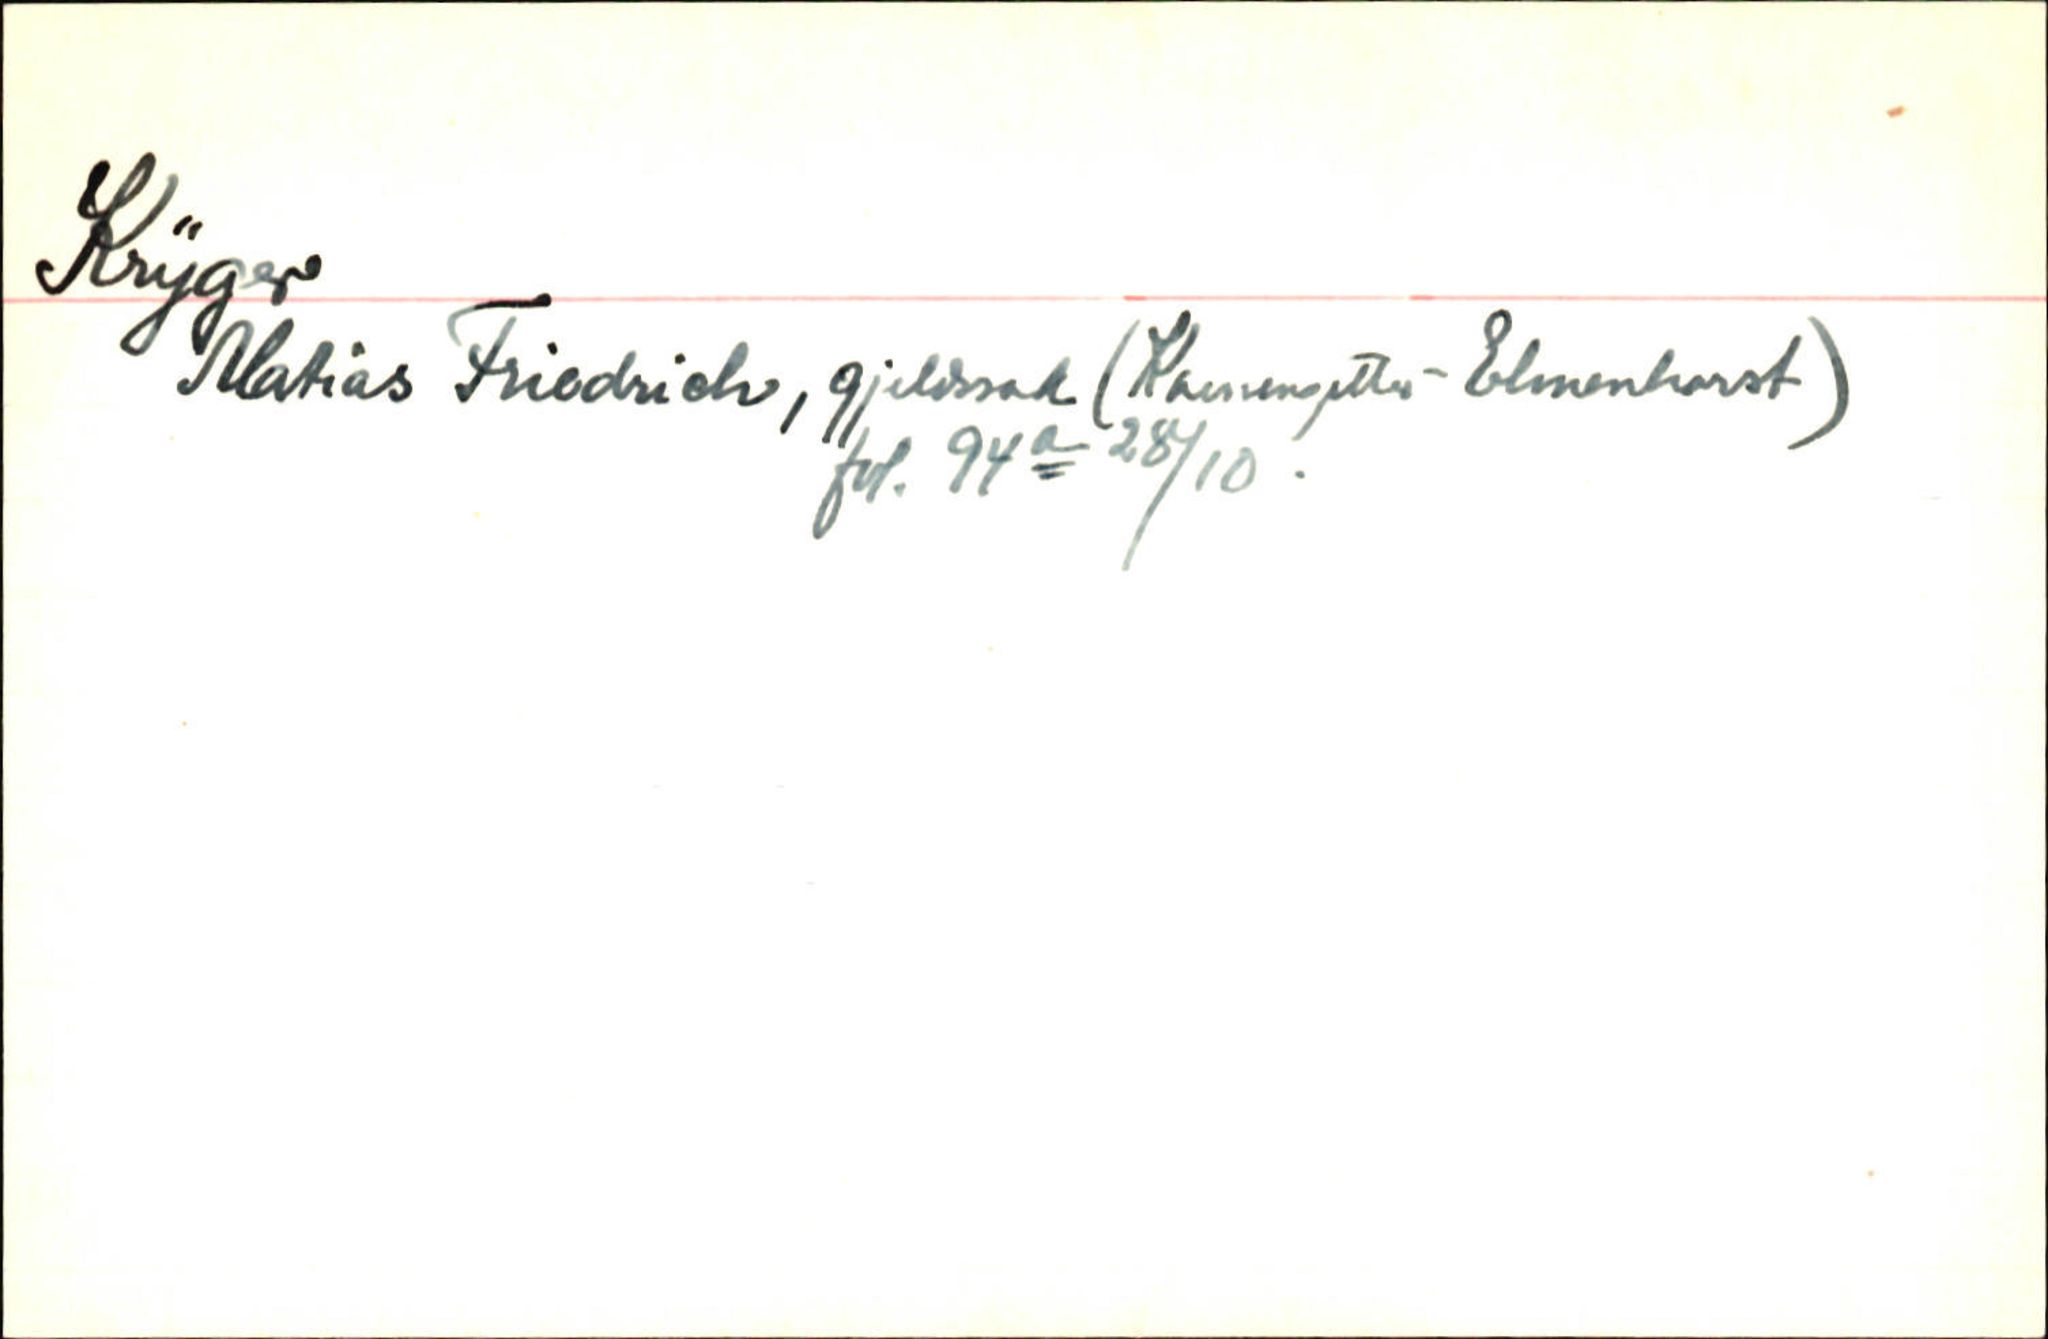 Krÿger
Matias Friedrich, gjeldssak ( - Elmenhorst)
fol. 94a 28/10.